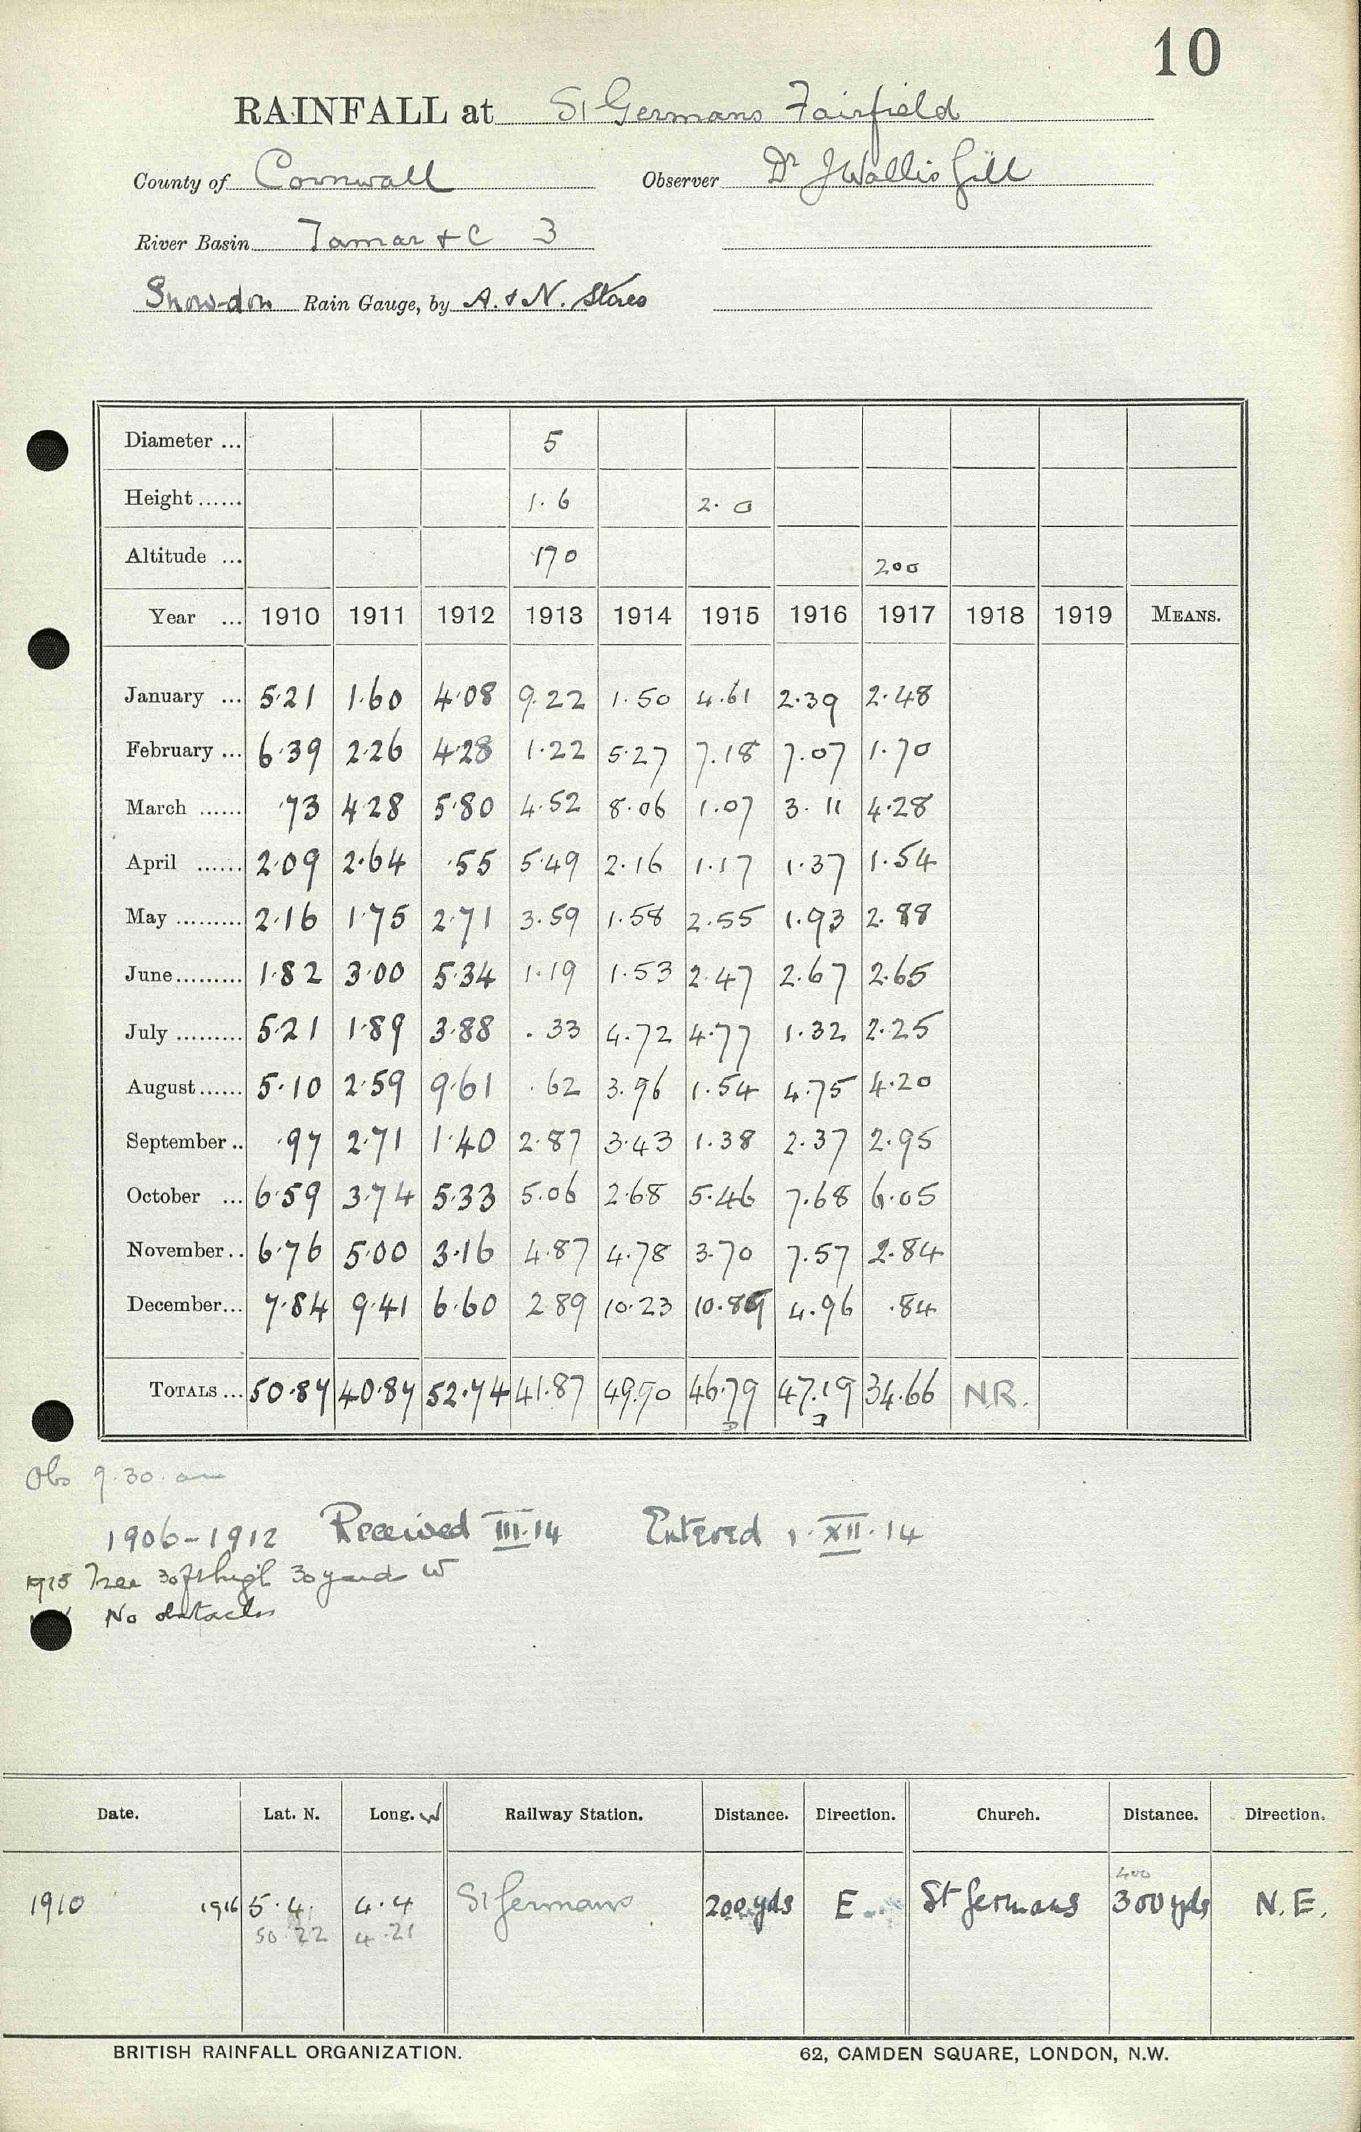 10
RAINFALL at St Germans Fairfield
County of Cornwall Observer Dr J Wallis Gill
River Basin Tamar & C 3
Snowdon Rain Gauge, by A. & N. Stores
Diameter ... 5
Height ...... 1.6 2.0
Altitude ... 170 200
Year ... 1910 1911 1912 1913 1914 1915 1916 1917 1918 1919 MEANS.
January ... 5.21 1.60 4.08 9.22 1.50 4.61 2.39 2.48
February ... 6.39 2.26 4.28 1.22 5.27 7.18 7.07 1.70
March ...... .73 4.28 5.80 4.52 8.06 1.07 3.11 4.28
April ...... 2.09 2.64 .55 5.49 2.16 1.17 1.37 1.54
May ......... 2.16 1.75 2.71 3.59 1.58 2.55 1.93 2.88
June ......... 1.82 3.00 5.34 1.19 1.53 2.47 2.67 2.65
July ......... 5.21 1.89 3.88 .33 4.72 4.77 1.32 2.25
August ...... 5.10 2.59 9.61 .62 3.96 1.54 4.75 4.20
September .. .97 2.71 1.40 2.87 3.43 1.38 2.37 2.95
October ... 6.59 3.74 5.33 5.06 2.68 5.46 7.68 6.05
November .. 6.76 5.00 3.16 4.87 4.78 3.70 7.57 2.84
December ... 7.84 9.41 6.60 2.89 10.23 10.89 4.96 .84
TOTALS ... 50.87 40.87 52.74 41.87 49.90 46.79 47.19 34.66 N.R.
Obs 9.30 am
1906-1912 Received III.14 Entered 1.XII.14
1915 Tree 30ft high 30 yards W
No obstacles
Date. Lat. N. Long. W Railway Station. Distance. Direction. Church. Distance. Direction.
400
1910 1916 5.4. 4.4 St Germans 200 yds E St Germans 300 yds N.E.
50.22 4.21
BRITISH RAINFALL ORGANIZATION. 62, CAMDEN SQUARE, LONDON, N.W.